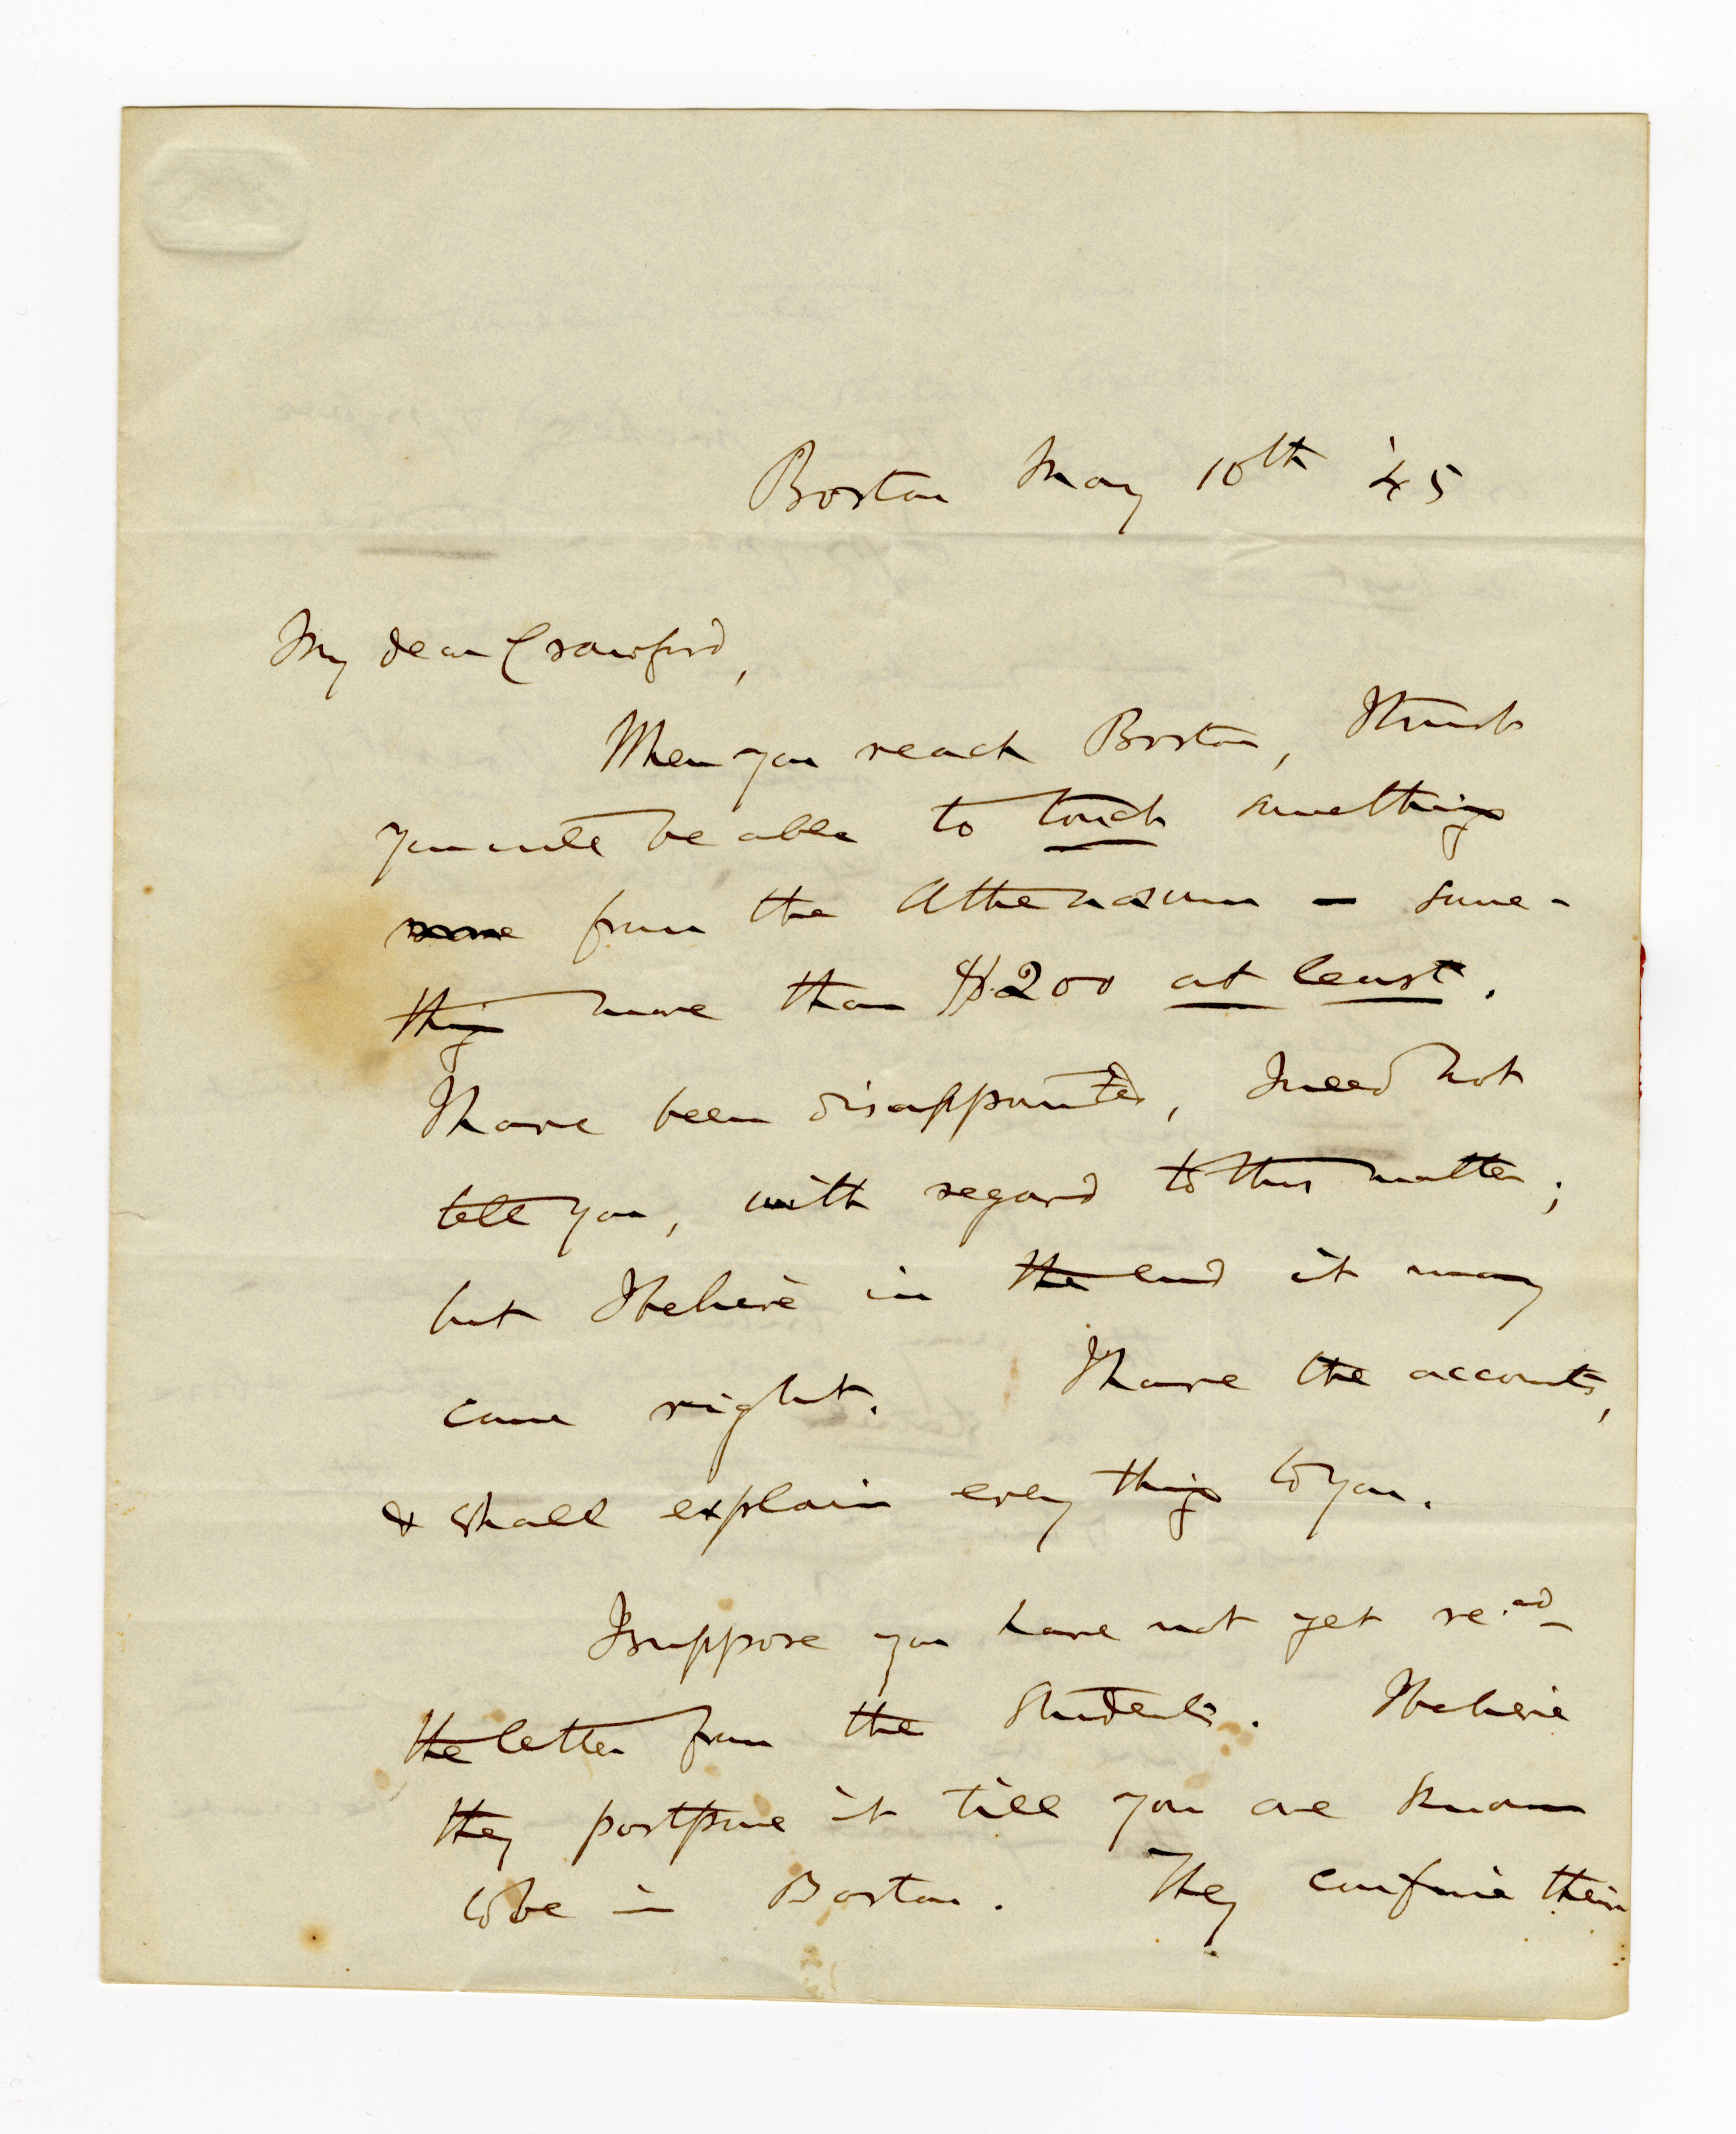 Boston May 10th '45
My dear Crawford,
When you reach Boston, I think
you will be able to touch something
from the Athenaeum — some-
thing more than $200 at least.
I have been disappointed, I need not
tell you, with regard to this matter;
but I believe in the end it may
come right. I have the accounts,
& shall explain every thing to you.
I suppose you have not yet recd
the letter from the Students. I believe
they postpone it till you are known
to be in Boston. They confine their